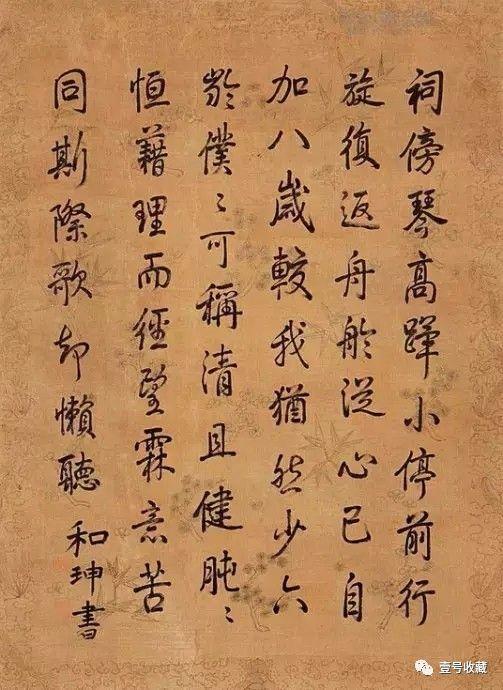 祠傍琴高蹕小停前行
旋復返舟舲從心已自
加八歲較我猶然少六
齡僕〻可稱清且健肫〻
恒藉理而經望霖意苦
同斯際歌却懶聽 和珅書
壹号收藏